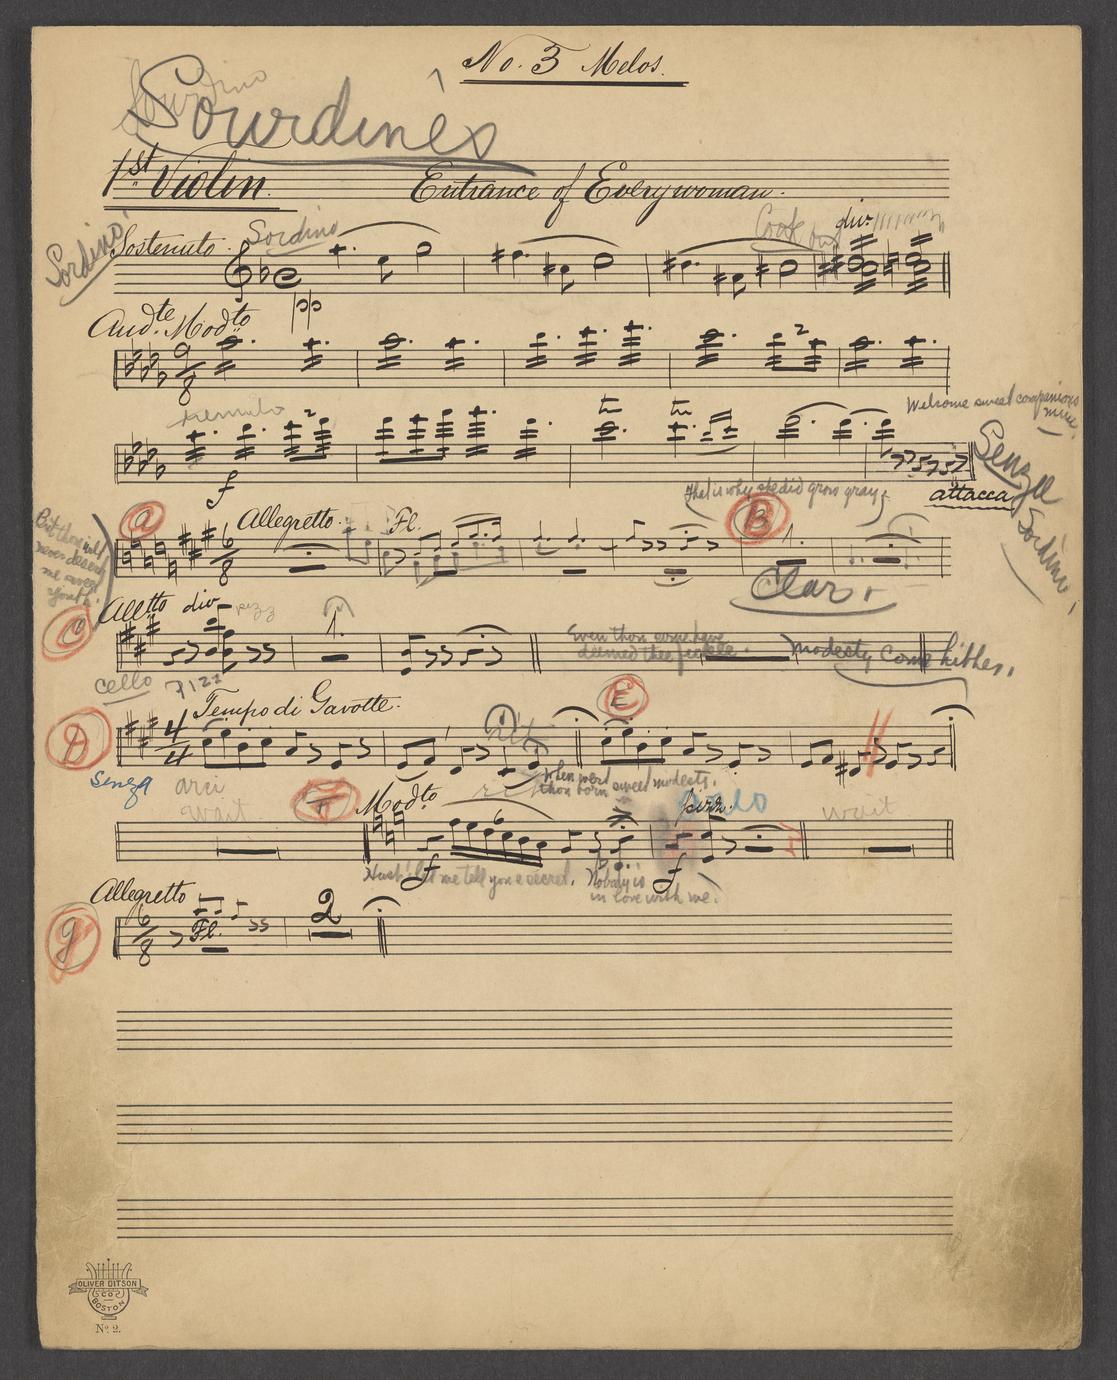 No. 3 Melos.
Sourdino
Sourdines
1st Violin.
Entrance of Everywoman.
Sordino
Sostenuto.
Sordino
div.
pp
Andte. Modto
9
8
2
tremulo
2
tr
tr
Welcome sweet companions mine.
f
attacca
Senza Sordini
That is why she did grow gray
But thou wilt never desert me sweet youth.
a
Allegretto.
Fl.
B
6
8
1.
Clar.
C
Alltto
div
pizz
1.
Even thou some have deemed thee fickle.
modesty Come hither.
cello
pizz
D
Tempo di Gavotte.
4
4
E
Senza
arci
When wert thou born sweet modesty.
wait
F
Modto
6
arco
pizz.
wait
f
f
Hush! let me tell you a secret.
Nobody is in love with me.
Allegretto
g
6
8
Fl.
2
OLIVER DITSON
CO
BOSTON
No. 2.